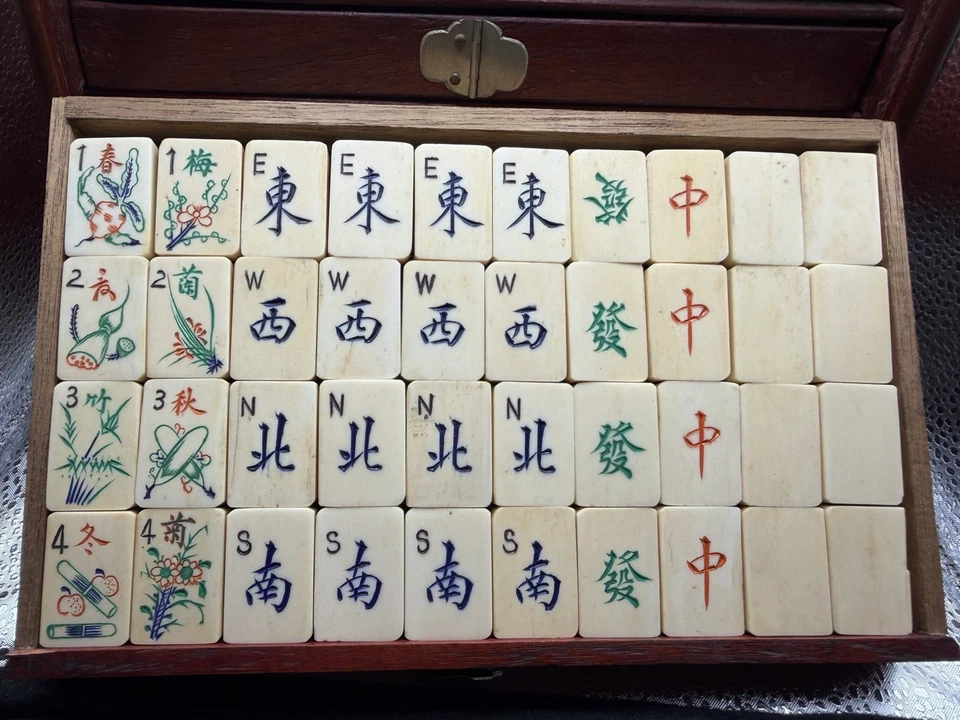 1 春 1 梅 E 東 E 東 E 東 E 東 發 中
2 夏 2 蘭 W 西 W 西 W 西 W 西 發 中
3 竹 3 秋 N 北 N 北 N 北 N 北 發 中
4 冬 4 菊 S 南 S 南 S 南 S 南 發 中